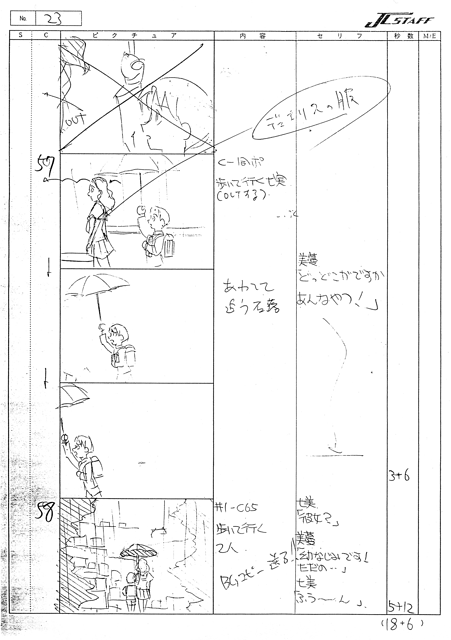 No 23
J.C.STAFF
S C ピクチュア 内容 セリフ 秒数 M・E
OUT
57
歩いて行く七実
(OUTする)
あわてて
追う石蕗
美蕗
「どっどこがですか
あんなやつ!」
3+6
58
#1-C65
歩いて行く
2人
BGコピー 送る!!
七実
「彼女?」
美蕗
「幼なじみです!
ただの…」
七実
「ふう〜ん」
5+12
(18+6)